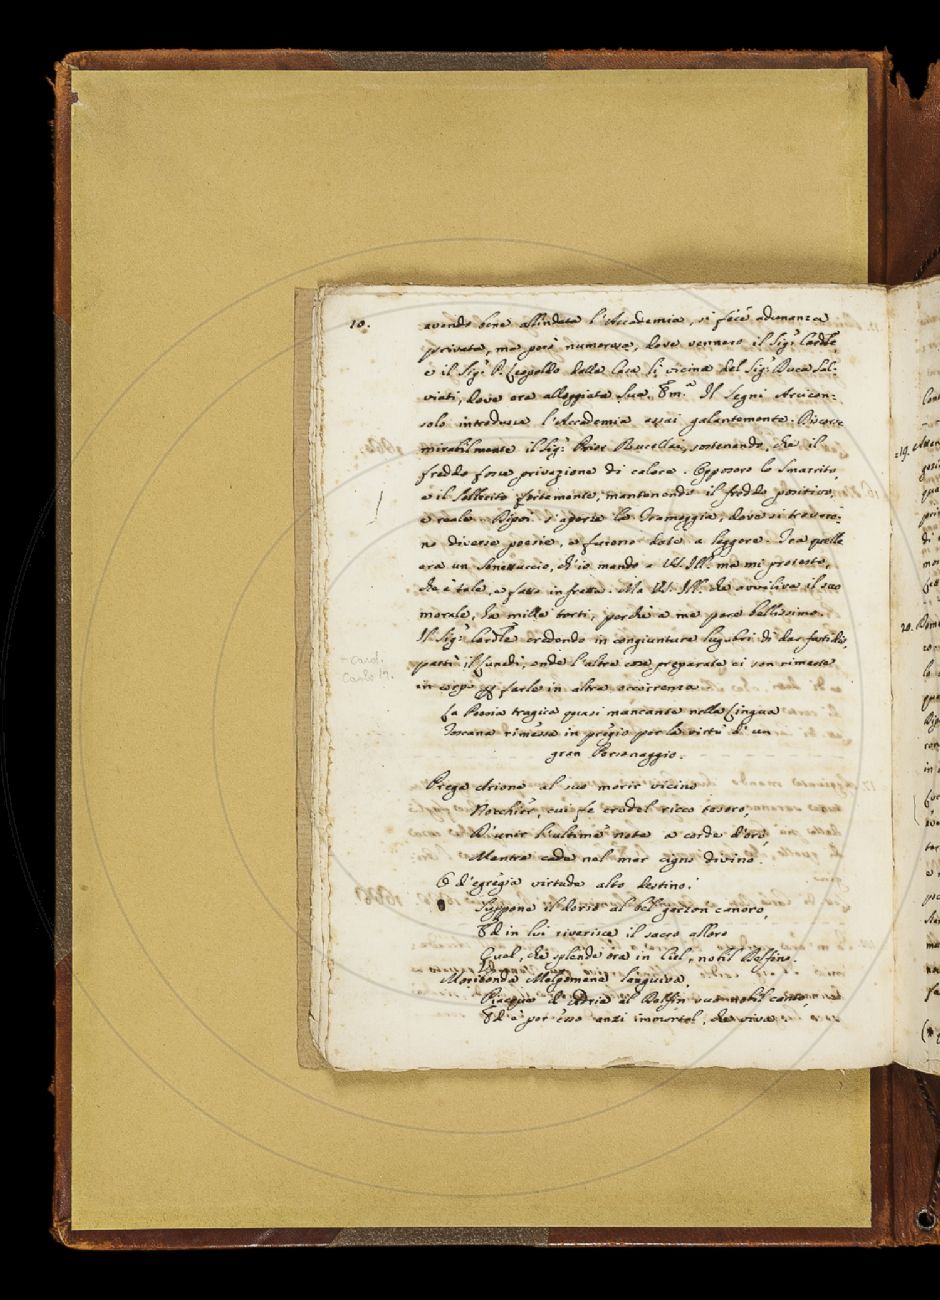 10.
avendo bene affidata l'Accademia, si fece adunanza
privata, ma però numerosa, dove vennero il Sig.r Cardle,
e il Sig.r P. Leopoldo dalla Casa lì vicina del Sig.r Duca Sal:
viati, dove era alloggiata Sua Em.a Il Segni Arcicon:
solo introdusse l'Accademia assai galantemente. Discorse
mirabilmente il Sig.r Prior Rucellai, sostenendo, che il
freddo fosse privazione di calore. Opposero lo Smarrito,
e il Sollecito fortemente, mantenendo il freddo positivo,
e reale. Dipoi s'aperse la Tramoggia, dove si trovaro:
no diverse poesie, e furono date a leggere. Tra quelle
era un Sonettuccio, ch'io mando a VS. Ill. ma mi protesto,
che è tale, e fatto in fretta. Ma VS. Ill. che avviliva il suo
morale, ha mille torti, perchè a me pare bellissimo.
Il Sig.r Cardle credendo in congiunture lugubri di dar fastidio,
partì il Lunedì, onde l'altre cose preparate ci son rimaste
in corpo p farle in altra occorrenza
- Card.
Carlo
La Poesia tragica quasi mancante nella Lingua
Toscana rimessa in pregio per la virtù di un
gran Personaggio.
Prega Arione al suo morir vicino
Nocchier, cui fe crudel ricco tesoro,
D'unir l'ultime note a corde d'oro,
Mentre cade nel mar cigno divino.
O d'egregia virtude alto destino!
Suppone il dorso al bel garzon canoro,
Ed in lui riverisce il sacro alloro
Qual, che splende ora in Ciel, nobil Delfino.
Moribonda Melpomene languiva,
Piacque d'Adria al Delfin suo nobil canto,
Ed è per esso anzi immortal, che viva.
19.
20.